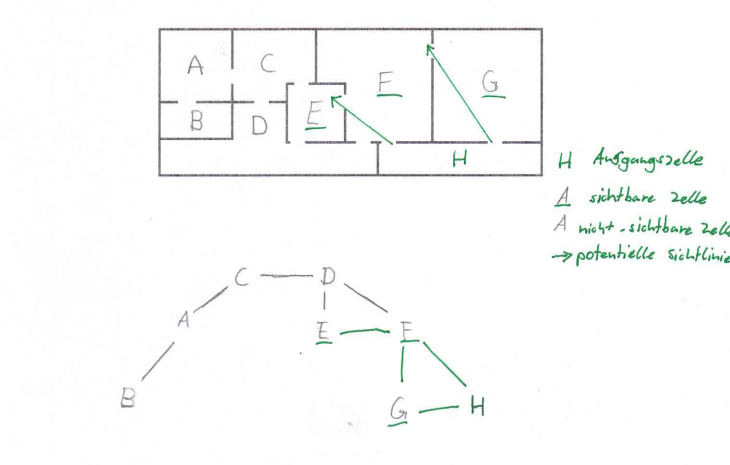 A C F G
B D E
H
H Ausgangszelle
A sichtbare Zelle
A nicht-sichtbare Zell
→ potentielle Sichtlinie
C D
A E F
B G H